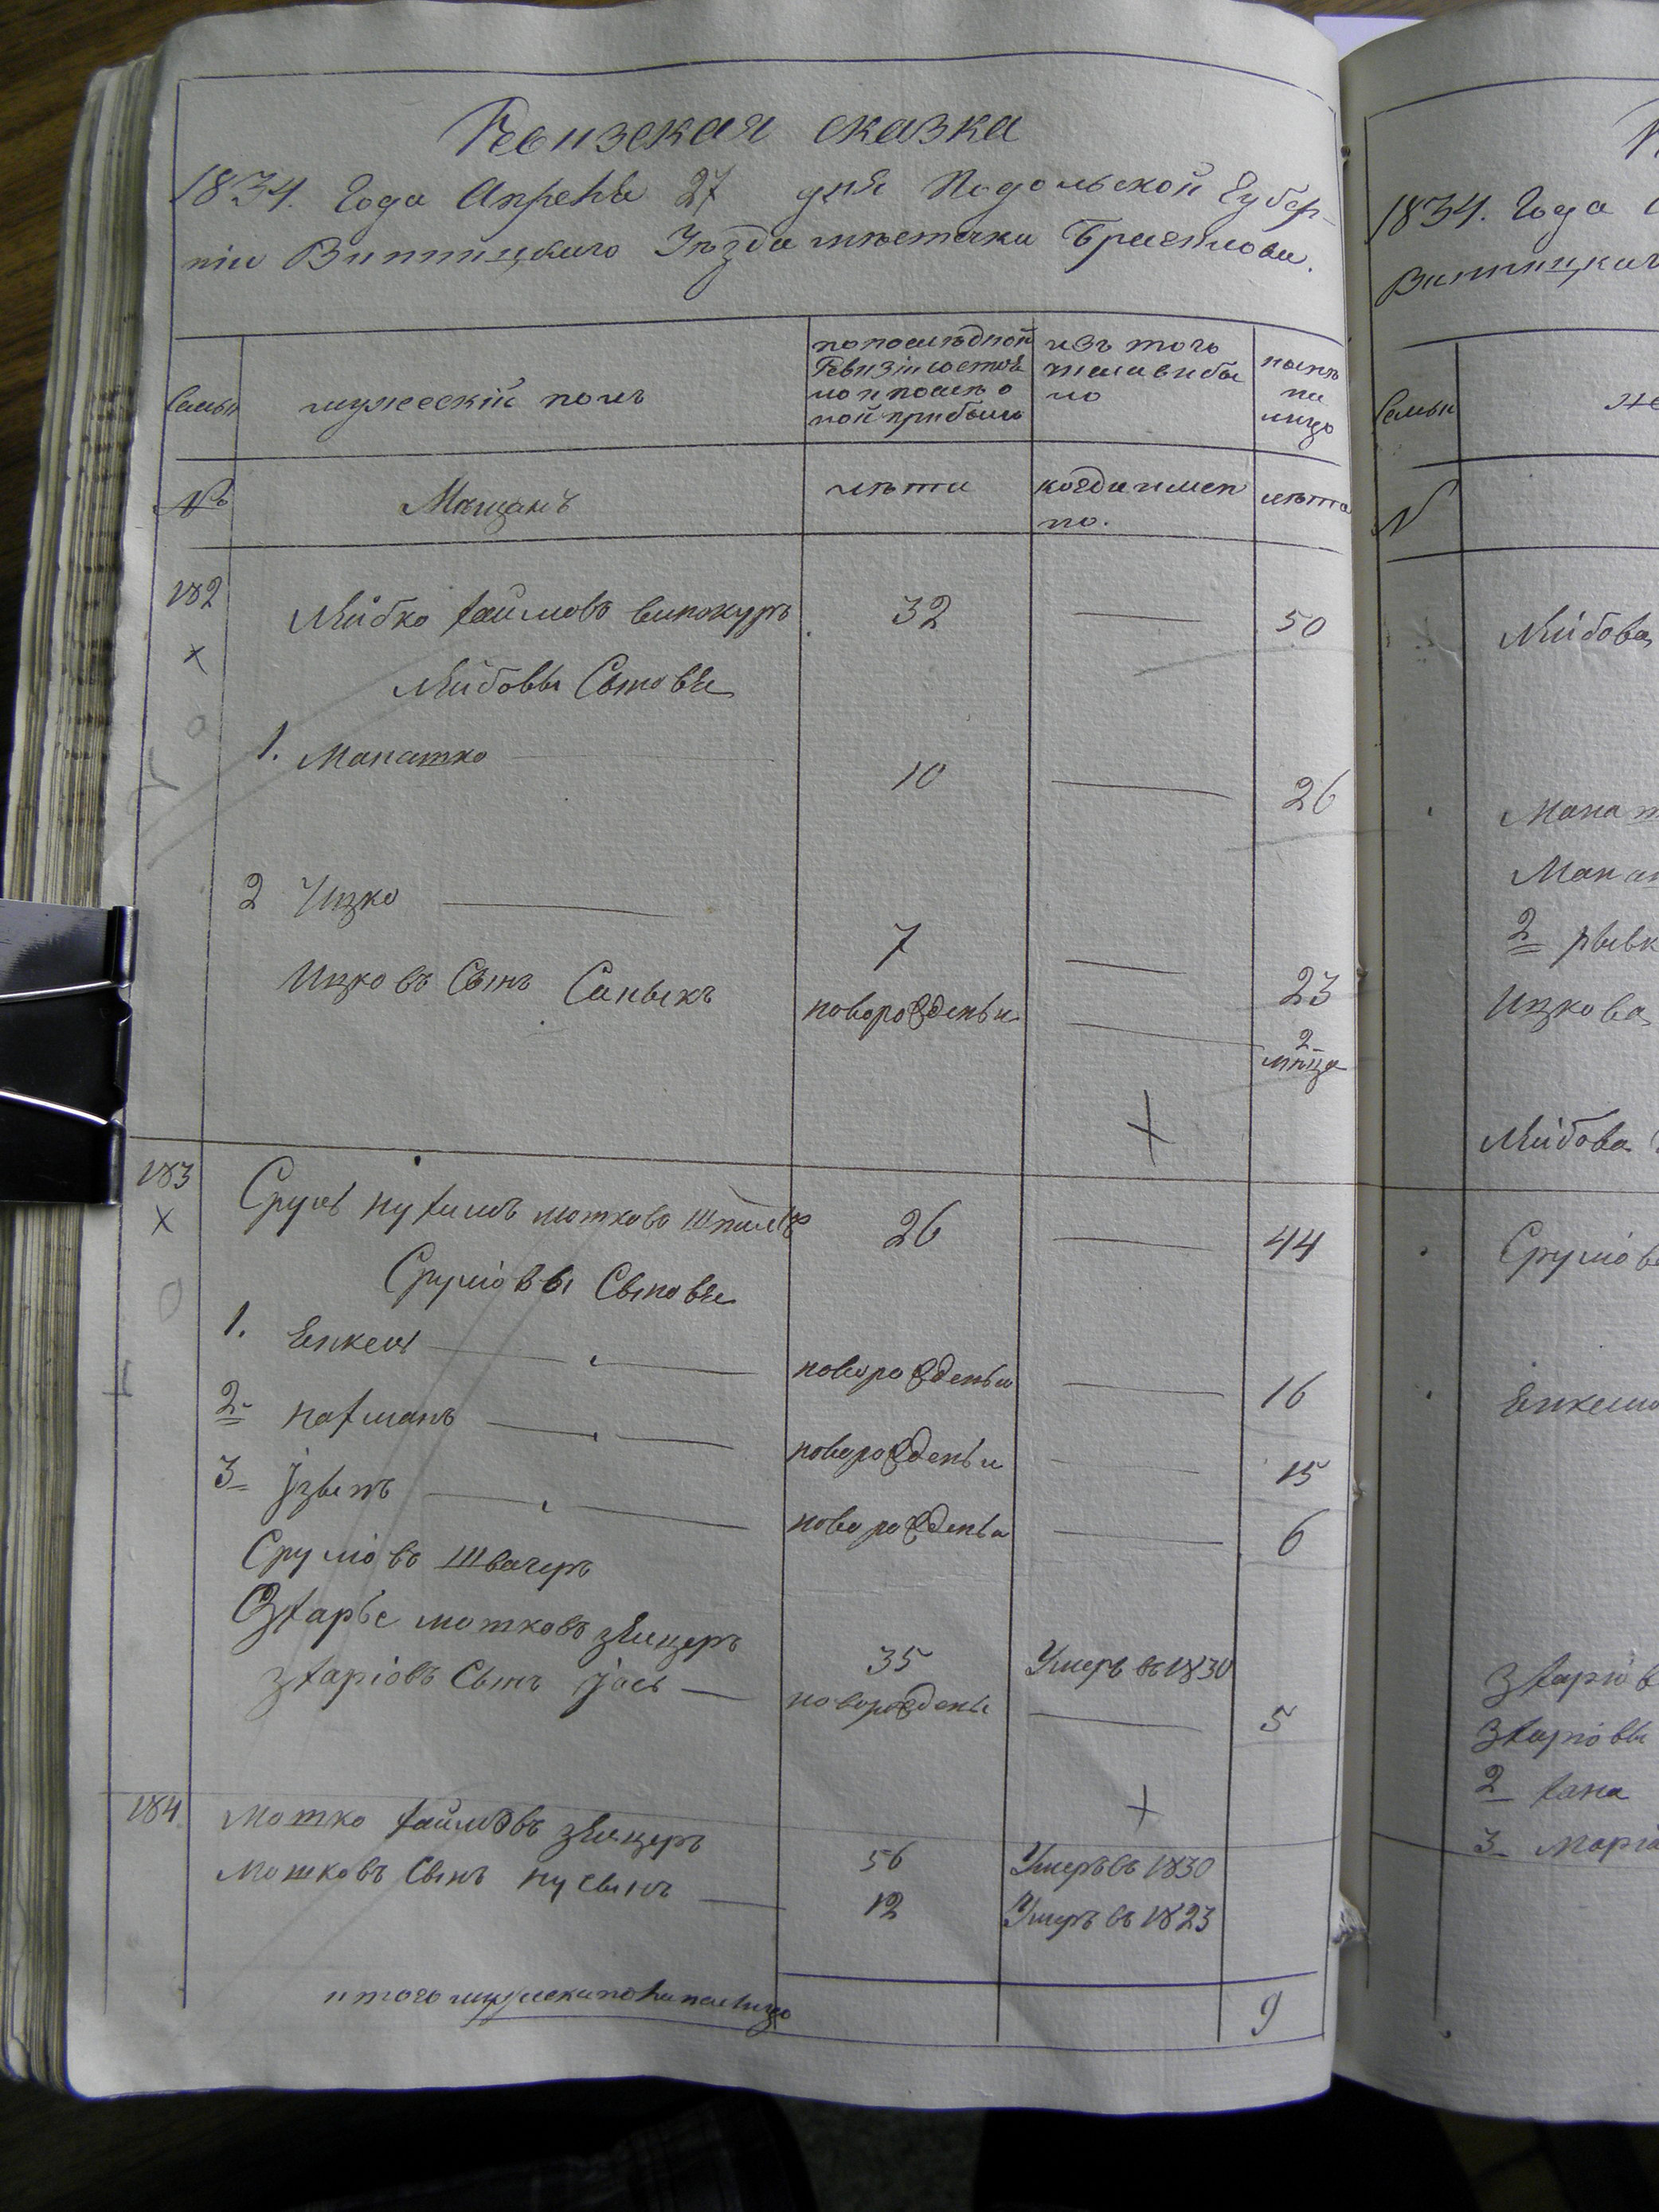 Ревизская сказка
1834. Года Апреля 27 дня Подольской Губер-
ніи Винницкаго Уѣзда мѣстечка Браилова.
Семьи
мужескій полъ
по последной
Ревизіи состоя
ло и после о
ной прибыло
изъ того
числа выбы
ло
ныне
на
лицо
№
Мещанъ
лѣта
когда имен
но.
лѣта
182
Лейбко Хаимовъ винокуръ 32 — 50
х
Лейбовы Сыновья
1. Манашко 10 — 26
2 Ицко — 7 — 23
Ицковъ Сынъ Саныкъ новорожденны — 2
мѣца
183
х
Сруль Нухимъ Мошковъ Шпилбъ 26 — 44
Срулiовы Сыновья
1. Енкель — новорожденны — 16
2. Нахманъ — новорожденны — 15
3 Јзынъ — новорожденны — 6
Срулiовъ Швагеръ
Зхарье Мошковъ зейцеръ 35 Умеръ въ 1830
Зхаріовъ Сынъ Јось — новорождены — 5
184
Мошко Хаимовъ зейцеръ 56 Умеръ въ 1830
Мошковъ Сынъ Нусынъ — 12 Умеръ въ 1823
итого мужеска пола налицо 9
1834. Года
Винницкаго
Семьи
N
Лейбова
2 рывк
Ицкова
Лейбова
Срулiова
Енкело
Зхаріов
Зхаріовы
2 Хана
3